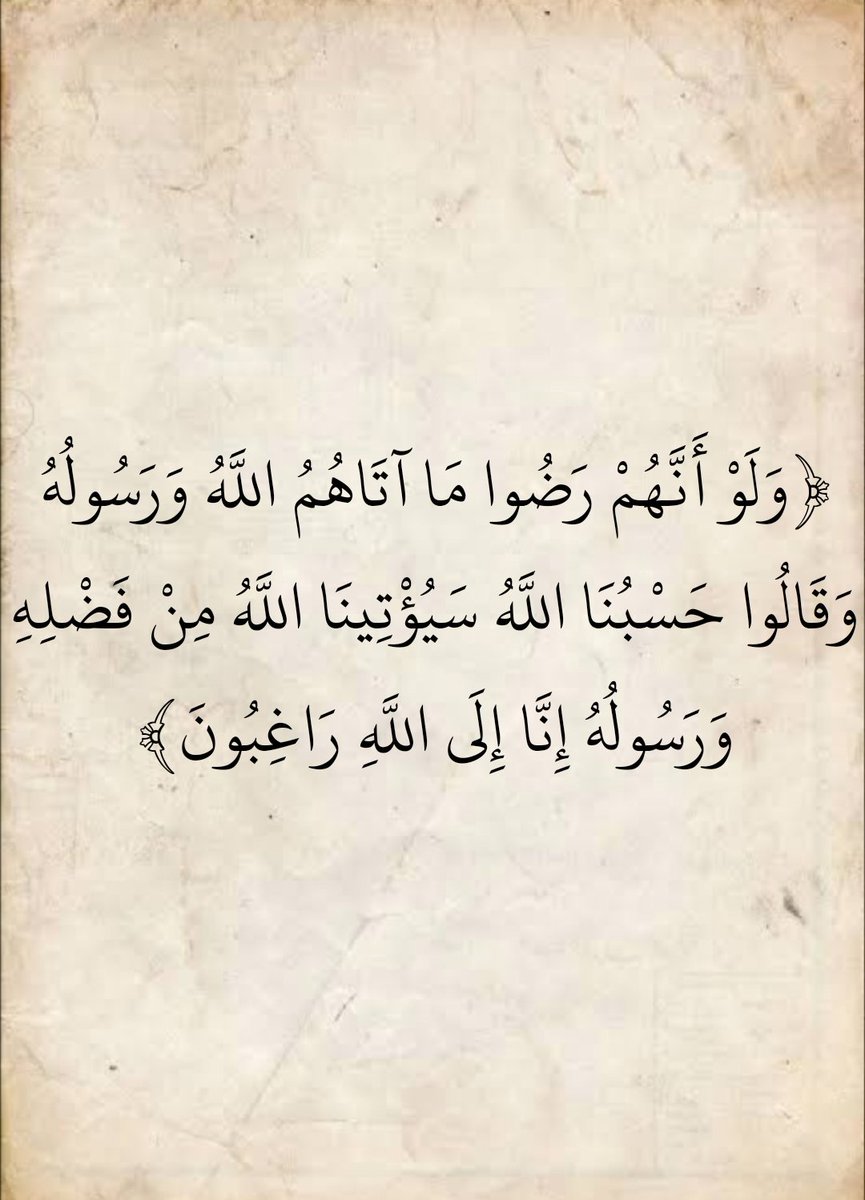 ﴿وَلَوْ أَنَّهُمْ رَضُوا مَا آتَاهُمُ اللَّهُ وَرَسُولُهُ
وَقَالُوا حَسْبُنَا اللَّهُ سَيُؤْتِينَا اللَّهُ مِنْ فَضْلِهِ
وَرَسُولُهُ إِنَّا إِلَى اللَّهِ رَاغِبُونَ﴾